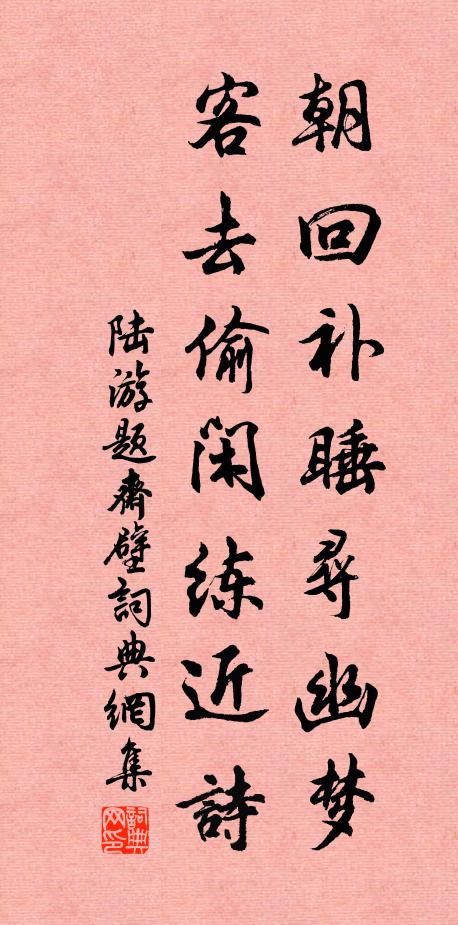 朝回补睡寻幽梦
客去偷闲练近詩
陆游题齋壁詞典網集
詞典网印